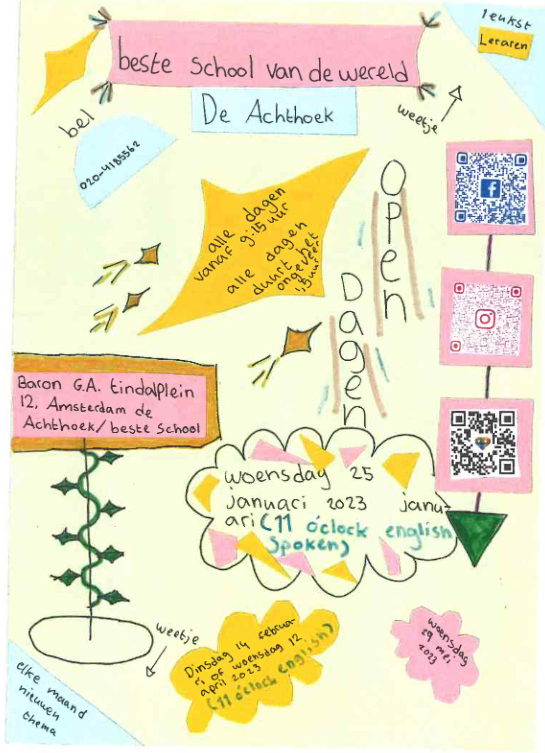 leukst
Leraren
beste school van de wereld
De Achthoek
weetje
bel
020-4185562
alle dagen
vanaf 9:15 uur
alle dagen
duurt het
ongeveer
Open
Dagen
Baron G.A. tindalplein
12, Amsterdam de
Achthoek/beste school
woensdag 25
januari 2023 janu-
ari (11 o'clock english
spoken)
weetje
Dinsdag 14 februa
ri of woensdag 12
april 2023
(11 o'clock english)
woensdag
29 mei
2023
elke maand
nieuwen
thema